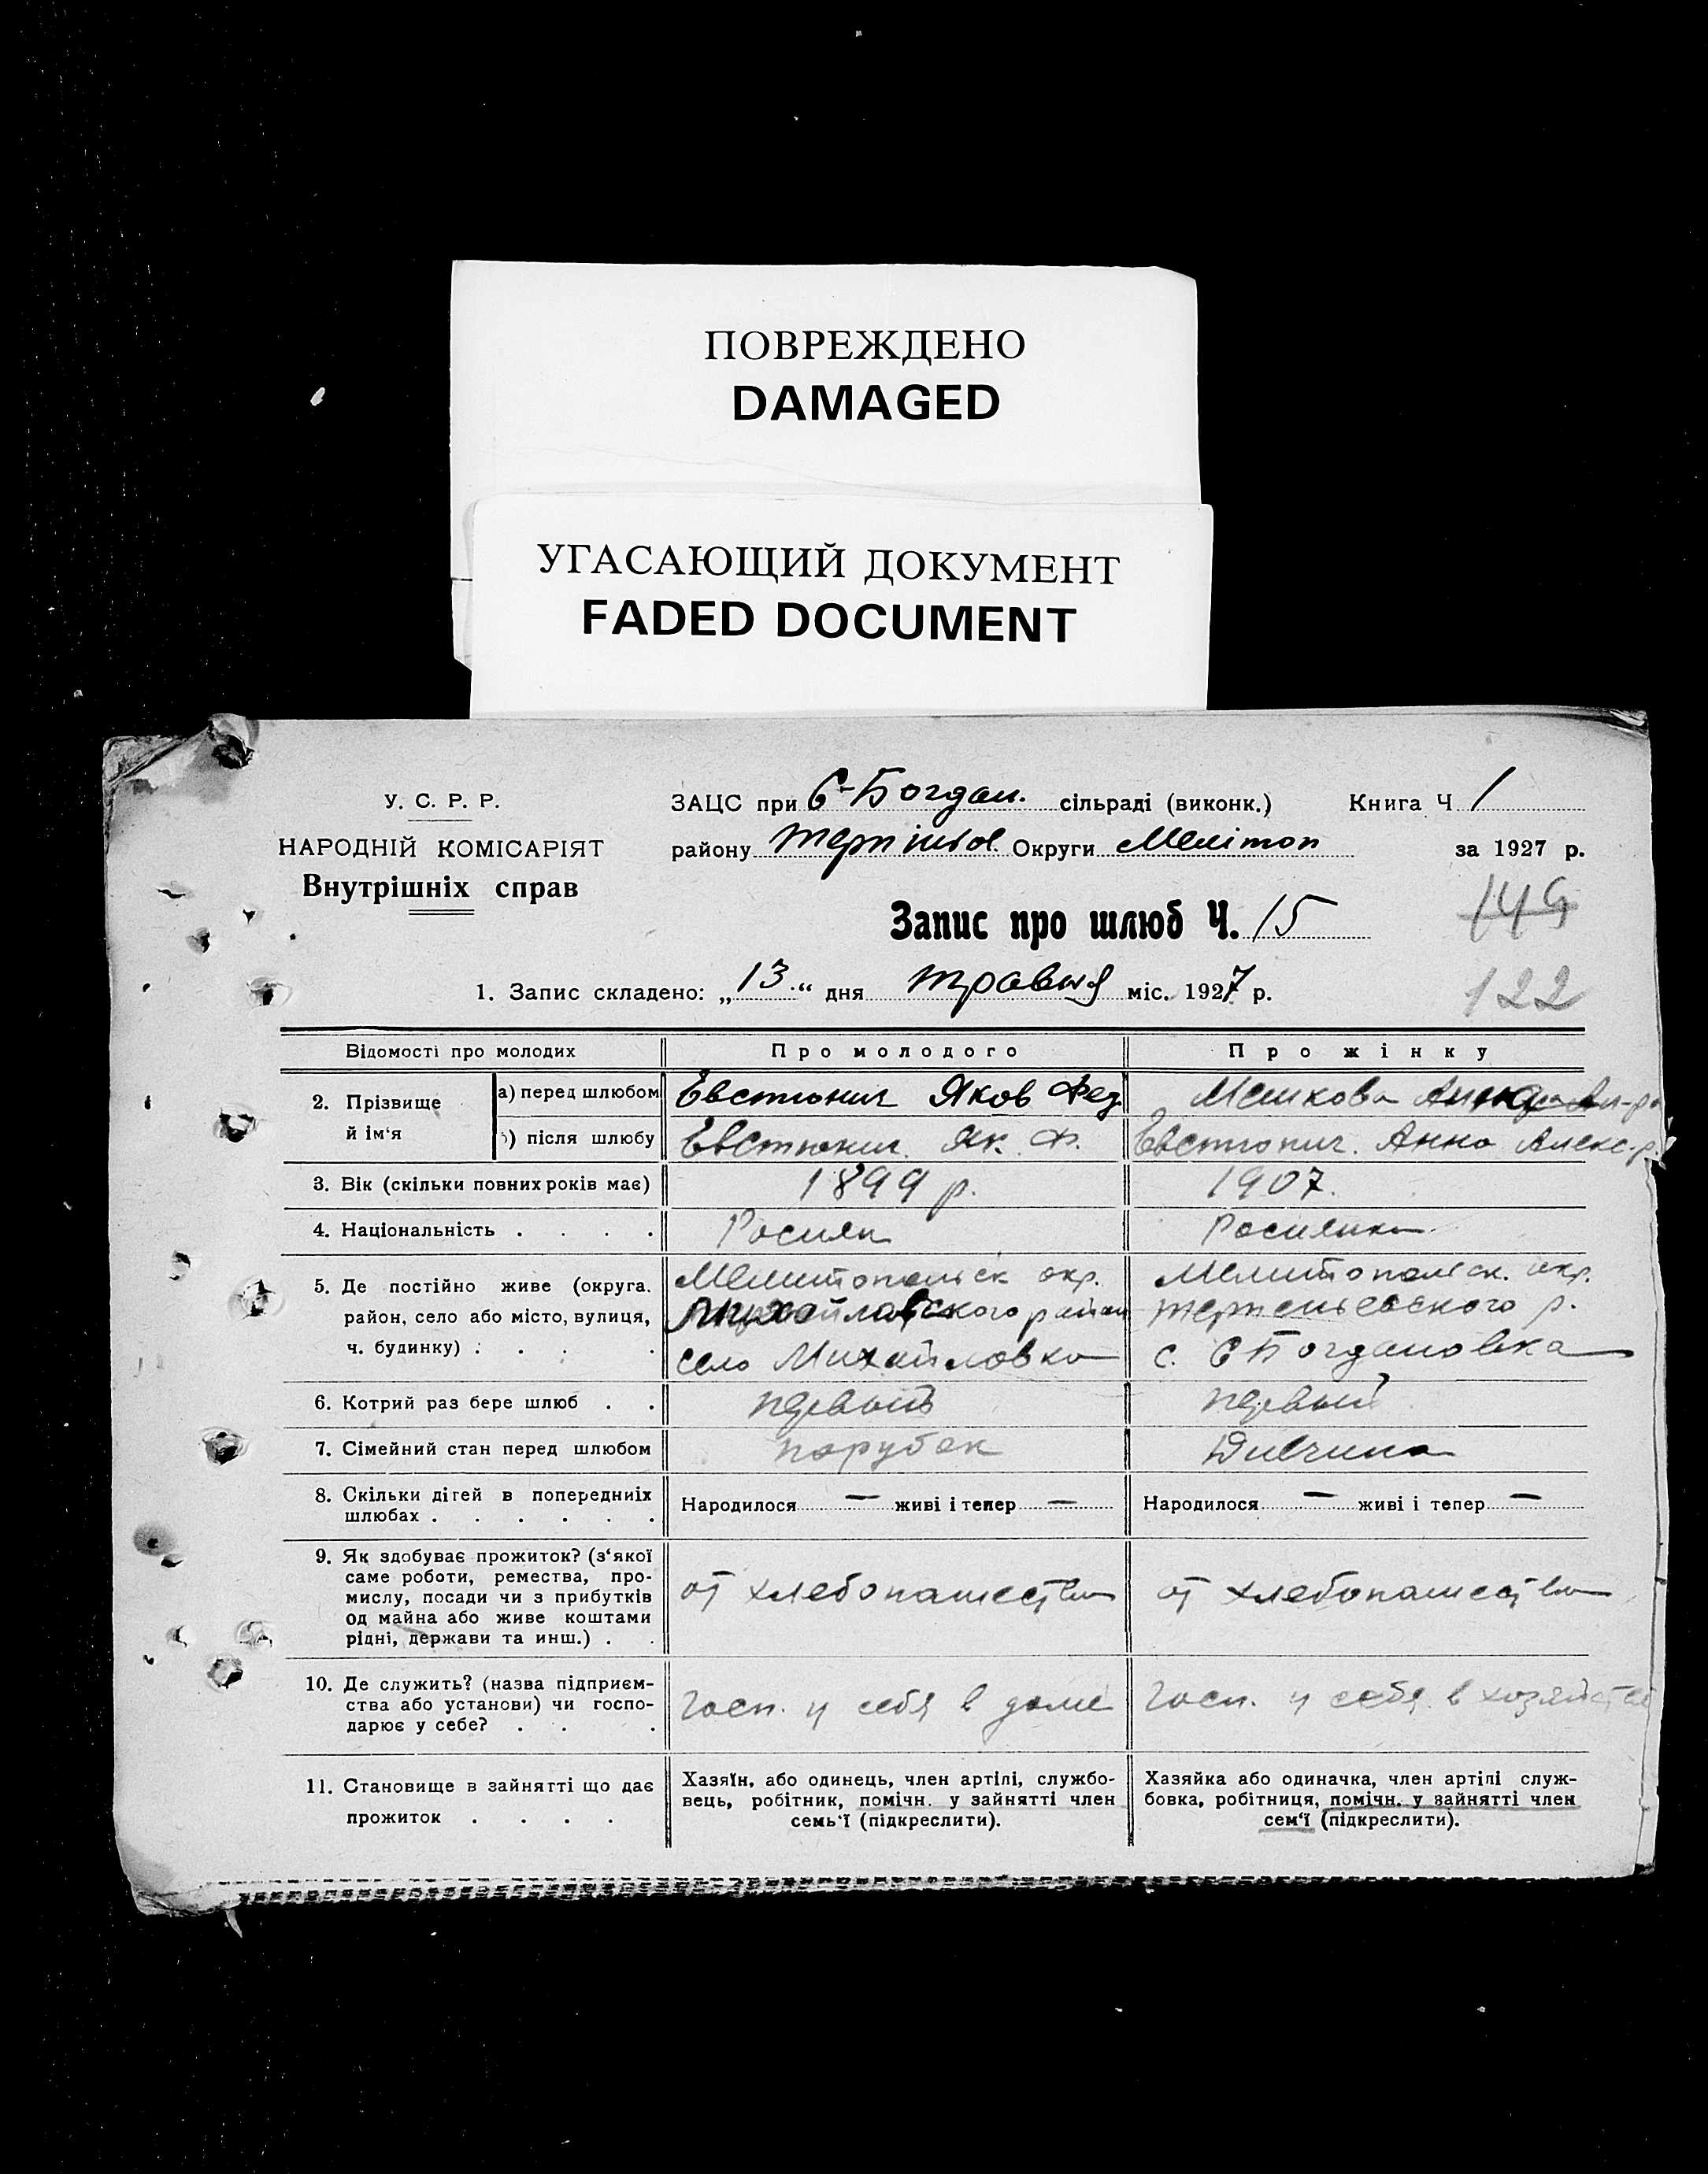 ПОВРЕЖДЕНО
DAMAGED
УГАСАЮЩИЙ ДОКУМЕНТ
FADED DOCUMENT
У. С. Р. Р.
НАРОДНІЙ КОМІСАРІЯТ
Внутрішніх справ
ЗАЦС при Є-Богдан. сільраді (виконк.) Книга Ч 1
району Терпіньов. Округи Мелітоп за 1927 р.
Запис про шлюб Ч. 15
149
1. Запис складено: „13.“ дня травня міс. 1927 р.
122
Відомості про молодих Про молодого Про жінку
2. Прізвище й ім‘я
а) перед шлюбом Евстюнич Яков Фед. Мешкова Анна Ал-ра
б) після шлюбу Евстюнич. Як. Ф. Евстюнич. Анна Алекс-р.
3. Вік (скільки повних років має) 1899 р. 1907.
4. Національність . . . . Росиян Росиянка
5. Де постійно живе (округа, район, село або місто, вулиця, ч. будинку) . . . .
Мелитопольск окр.
Михайловского район
село Михайловка
Мелитопольск. окр.
терпеньевского р.
с. Є Богдановка
6. Котрий раз бере шлюб . . первый первый
7. Сімейний стан перед шлюбом парубок Дивчина
8. Скільки дітей в попередніх шлюбах . . . . . . Народилося — живі і тепер — Народилося — живі і тепер —
9. Як здобуває прожиток? (з‘якої
саме роботи, ремества, про-
мислу, посади чи з прибутків
од майна або живе коштами
рідні, держави та инш.) . .
от хлебопашества от хлебопашества
10. Де служить? (назва підприєм-
ства або установи) чи госпо-
дарює у себе? . . .
Госп. у себя в доме Госп. у себя в хозяйстве
11. Становище в зайнятті що дає
прожиток . . . .
Хазяїн, або одинець, член артілі, службо-
вець, робітник, помічн. у зайнятті член
семь‘ї (підкреслити).
Хазяйка або одиначка, член артілі служ-
бовка, робітниця, помічн. у зайнятті член
сем‘ї (підкреслити).